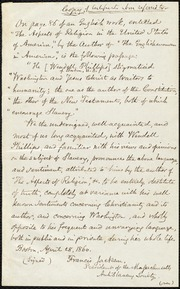 On page 86 of an English work, entitled
"The Aspects of Religion in the United States
of America," by the Author of "The Englishwoman
in America," is the following passage:
"He [Wendell Phillips] stigmatised
"Washington and Jesus Christ as traitors to
humanity; the one as the author of the Constitution,
the other of the New Testament, both of which
encourage Slavery."
We the undersigned, well-acquainted, and
most of us long acquainted, with Wendell
Phillips and familiar with his views and opinions
on the subject of Slavery, pronounce the above language
and sentiment, attributed to him by the author of
"The Aspects of Religion," &c. to be utterly destitute
of truth, completely at variance with his well
known sentiments concerning Christianity and its
author, and concerning Washington, and wholly
opposite to his frequent and unvarying language,
both in public and in private, during his whole life.
Boston, April 18, 1860.
(Signed) Francis Jackson,
President of the Massachusetts
Anti Slavery Society